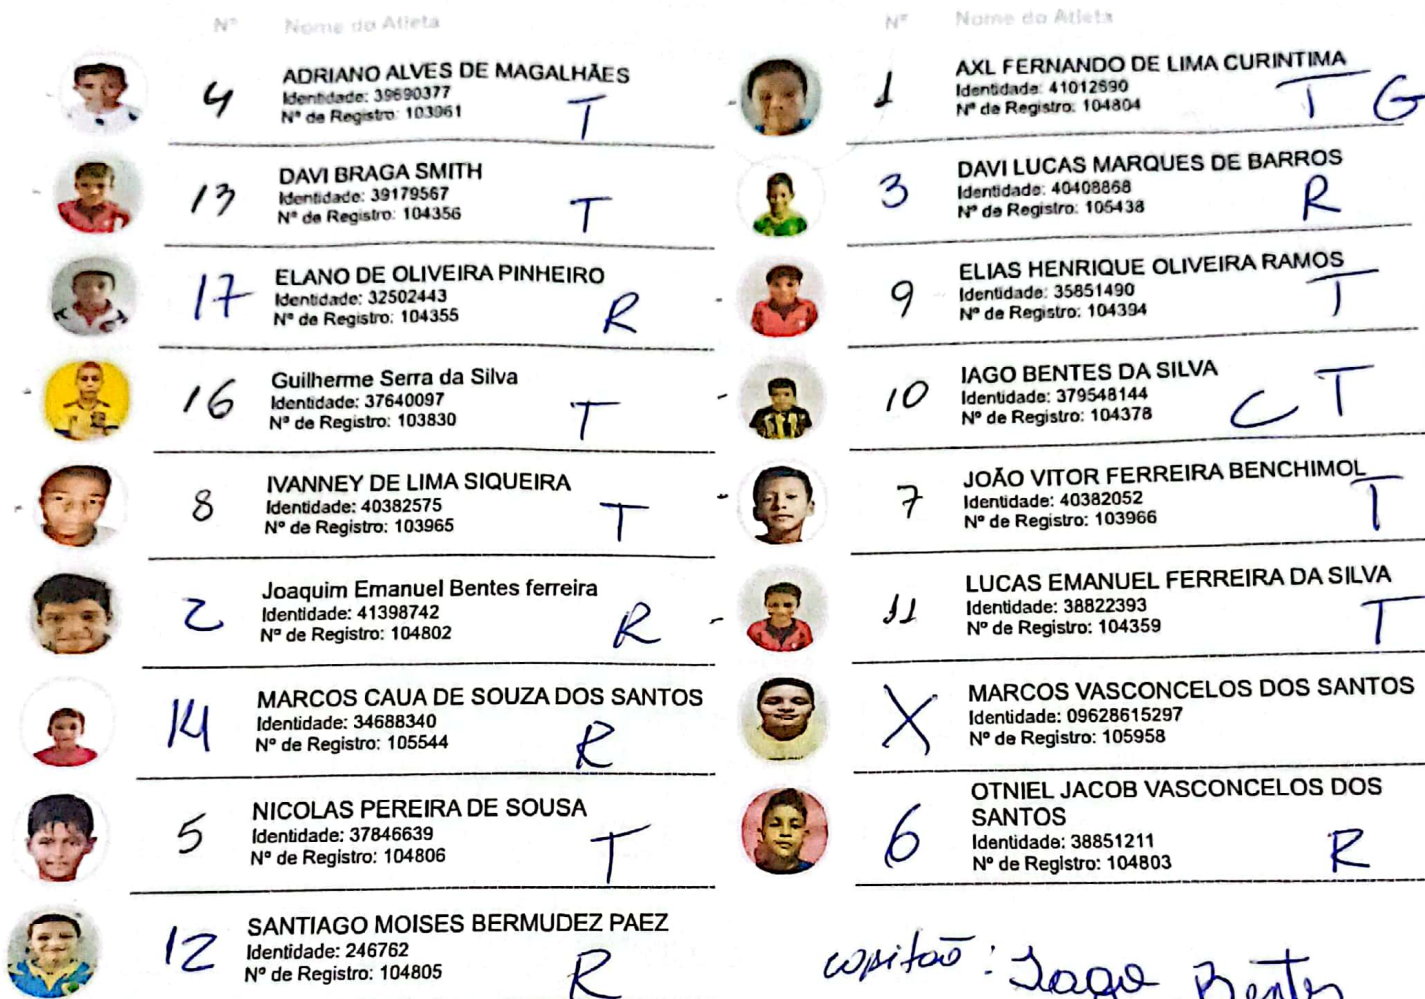 Nº Nome do Atleta
4 ADRIANO ALVES DE MAGALHÃES
Identidade: 39690377
Nº de Registro: 103961 T
13 DAVI BRAGA SMITH
Identidade: 39179567
Nº de Registro: 104356 T
17 ELANO DE OLIVEIRA PINHEIRO
Identidade: 32502443
Nº de Registro: 104355 R
16 Guilherme Serra da Silva
Identidade: 37640097
Nº de Registro: 103830 T
8 IVANNEY DE LIMA SIQUEIRA
Identidade: 40382575
Nº de Registro: 103965 T
2 Joaquim Emanuel Bentes ferreira
Identidade: 41398742
Nº de Registro: 104802 R
14 MARCOS CAUA DE SOUZA DOS SANTOS
Identidade: 34688340
Nº de Registro: 105544 R
5 NICOLAS PEREIRA DE SOUSA
Identidade: 37846639
Nº de Registro: 104806 T
12 SANTIAGO MOISES BERMUDEZ PAEZ
Identidade: 246762
Nº de Registro: 104805 R
Nº Nome do Atleta
1 AXL FERNANDO DE LIMA CURINTIMA
Identidade: 41012690
Nº de Registro: 104804 T G
3 DAVI LUCAS MARQUES DE BARROS
Identidade: 40408868
Nº de Registro: 105438 R
9 ELIAS HENRIQUE OLIVEIRA RAMOS
Identidade: 35851490
Nº de Registro: 104394 T
10 IAGO BENTES DA SILVA
Identidade: 379548144
Nº de Registro: 104378 C T
7 JOÃO VITOR FERREIRA BENCHIMOL
Identidade: 40382052
Nº de Registro: 103966 T
11 LUCAS EMANUEL FERREIRA DA SILVA
Identidade: 38822393
Nº de Registro: 104359 T
X MARCOS VASCONCELOS DOS SANTOS
Identidade: 09628615297
Nº de Registro: 105958
6 OTNIEL JACOB VASCONCELOS DOS
SANTOS
Identidade: 38851211
Nº de Registro: 104803 R
capitão: Iago Bentes